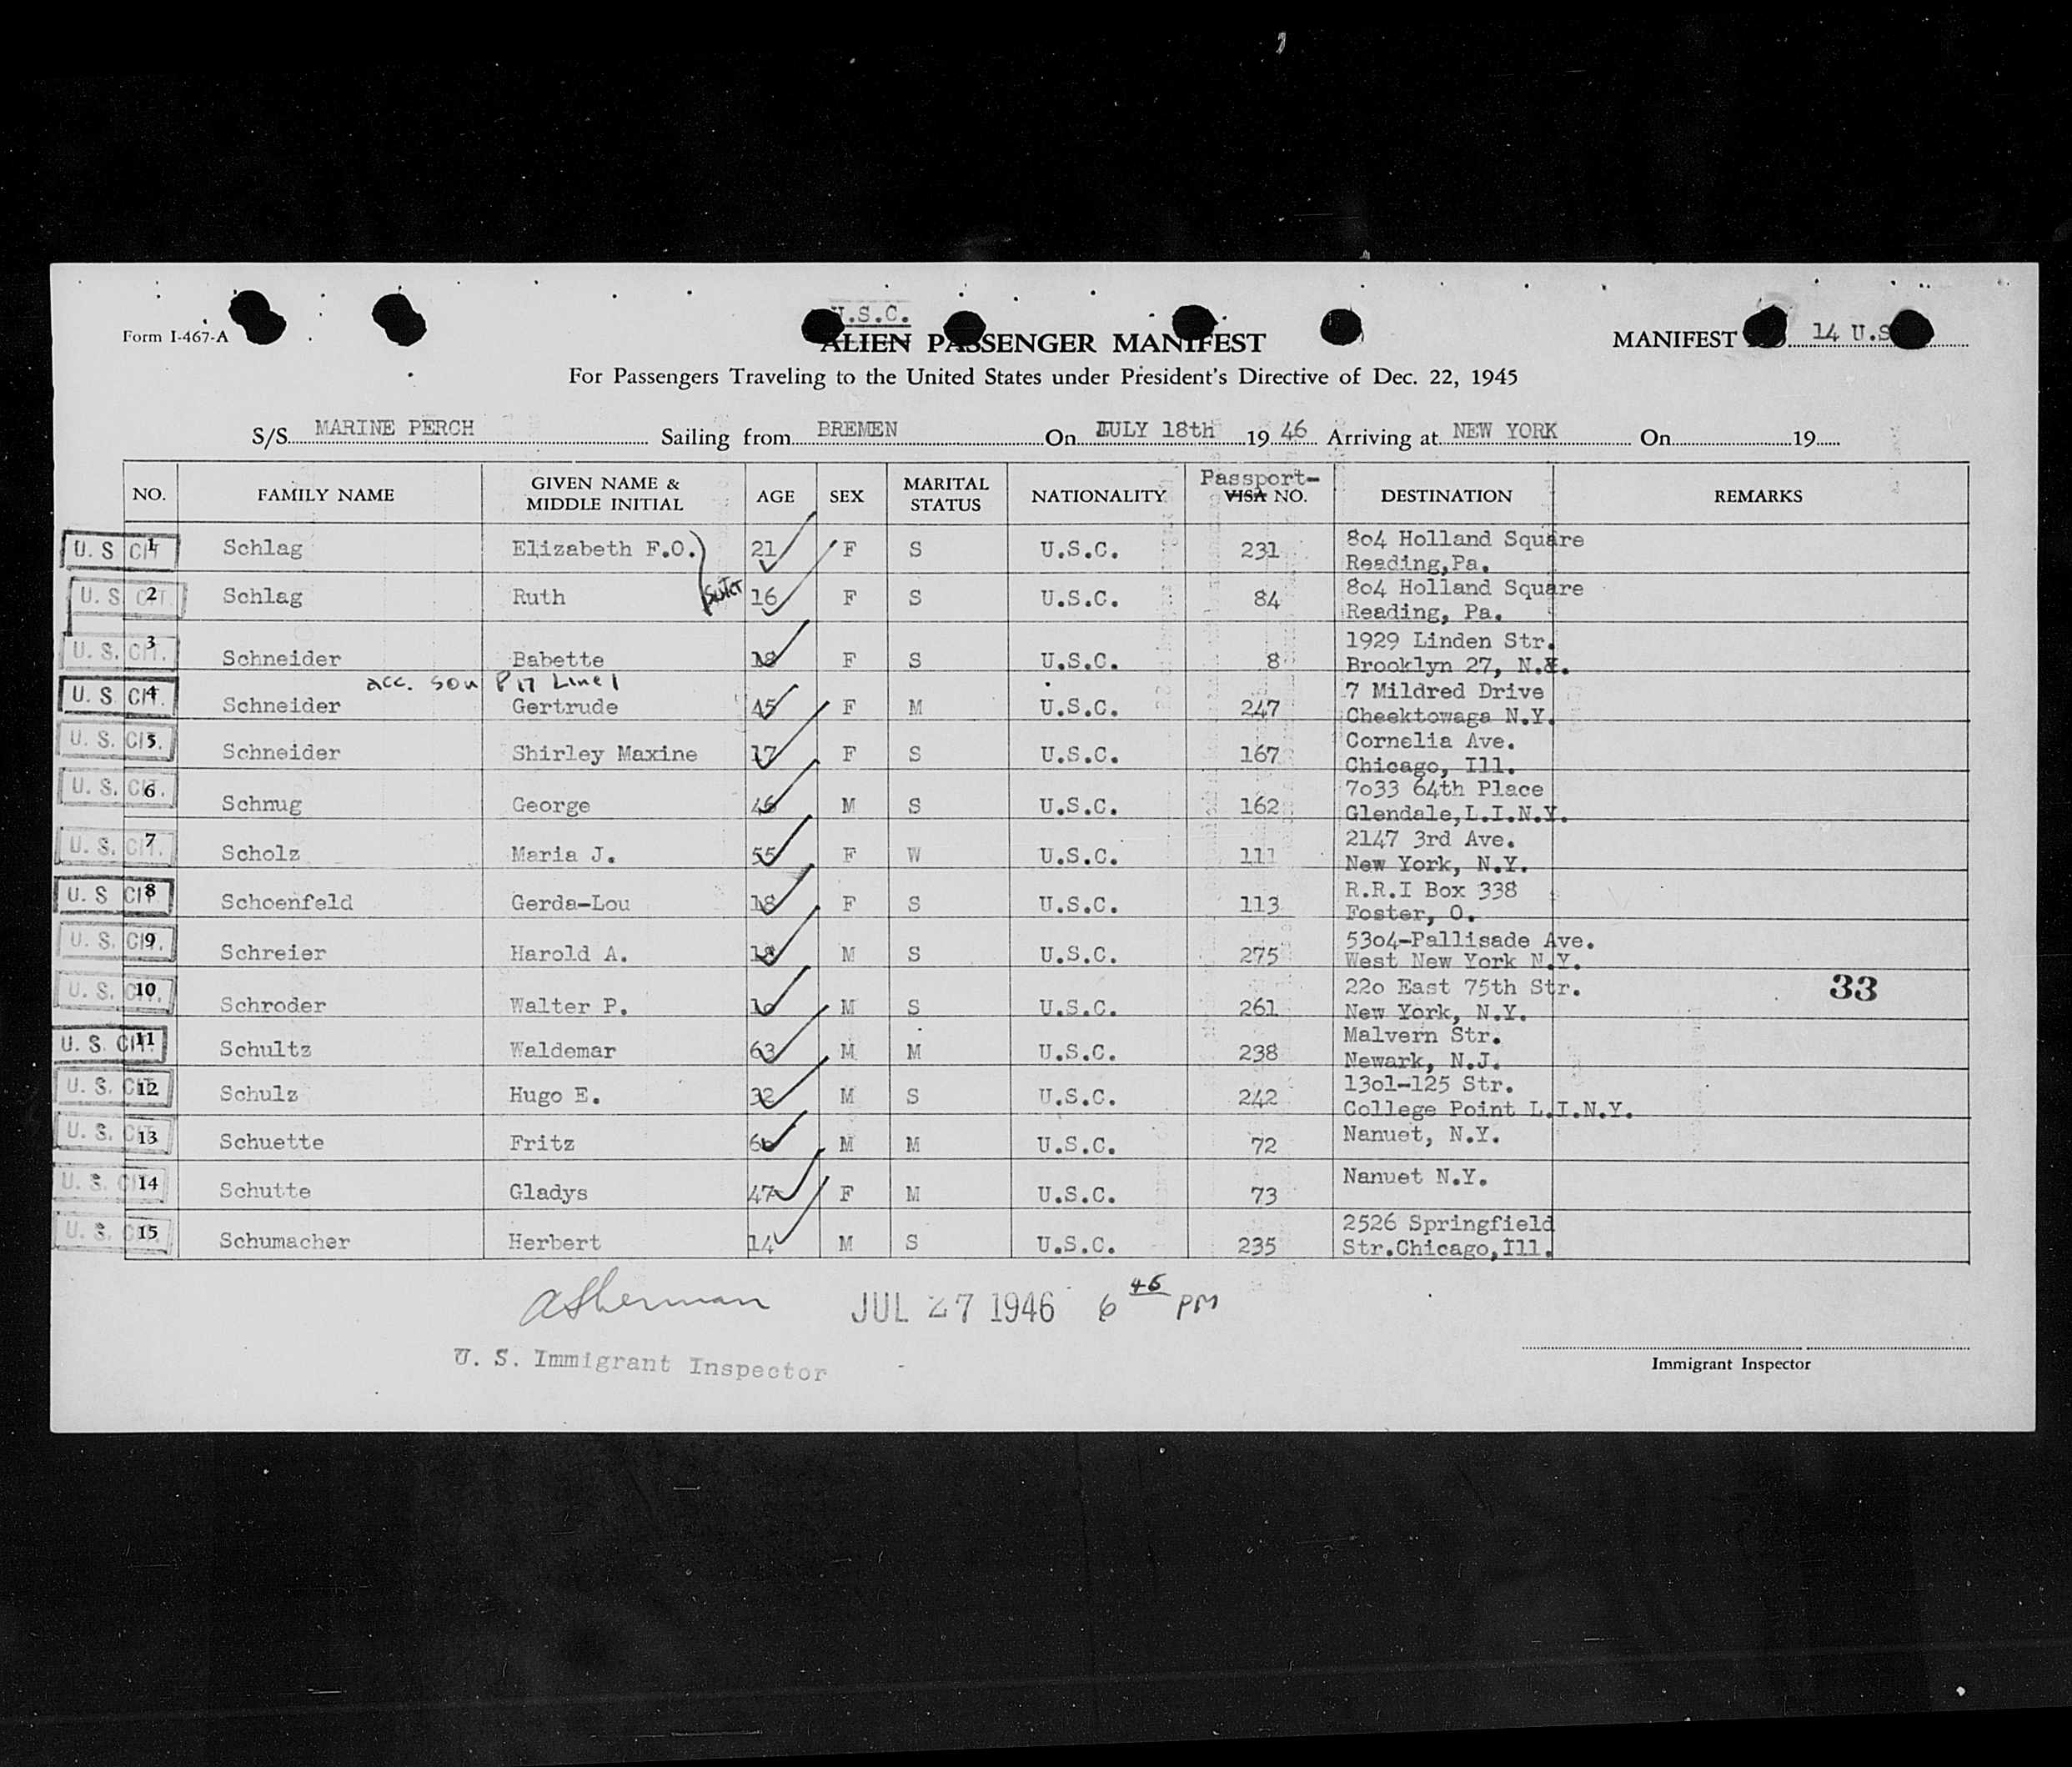 Form I-467-A
U.S.C.
ALIEN PASSENGER MANIFEST
MANIFEST 14 U.S
For Passengers Traveling to the United States under President's Directive of Dec. 22, 1945
S/S MARINE PERCH Sailing from BREMEN On JULY 18th 19 46 Arriving at NEW YORK On 19
NO. FAMILY NAME GIVEN NAME & MIDDLE INITIAL AGE SEX MARITAL STATUS NATIONALITY Passport- VISA NO. DESTINATION REMARKS
U. S CIT 1 Schlag Elizabeth F.O. 21 F S U.S.C. 231 804 Holland Square
Reading,Pa.
sister
U. S. CIT. 2 Schlag Ruth 16 F S U.S.C. 84 804 Holland Square
Reading, Pa.
U. S. CIT. 3 Schneider Babette 18 F S U.S.C. 8 1929 Linden Str.
Brooklyn 27, N.Y.
acc. son P 17 Line 1
U. S CIT. 4 Schneider Gertrude 45 F M U.S.C. 247 7 Mildred Drive
Cheektowaga N.Y.
U. S. CIT. 5 Schneider Shirley Maxine 17 F S U.S.C. 167 Cornelia Ave.
Chicago, Ill.
U. S. CIT. 6 Schnug George 46 M S U.S.C. 162 7033 64th Place
Glendale,L.I.N.Y.
U. S. CIT. 7 Scholz Maria J. 55 F W U.S.C. 111 2147 3rd Ave.
New York, N.Y.
U. S CIT 8 Schoenfeld Gerda-Lou 18 F S U.S.C. 113 R.R.I Box 338
Foster, O.
U. S. CIT. 9 Schreier Harold A. 18 M S U.S.C. 275 5304-Pallisade Ave.
West New York N.Y.
U. S. CIT. 10 Schroder Walter P. M S U.S.C. 261 220 East 75th Str.
New York, N.Y.
33
U. S. CIT. 11 Schultz Waldemar 63 M M U.S.C. 238 Malvern Str.
Newark, N.J.
U. S. CIT 12 Schulz Hugo E. 32 M S U.S.C. 242 1301-125 Str.
College Point L.I.N.Y.
U. S. CIT 13 Schuette Fritz M M U.S.C. 72 Nanuet, N.Y.
U. S. CIT 14 Schutte Gladys 47 F M U.S.C. 73 Nanuet N.Y.
U. S. CIT. 15 Schumacher Herbert 14 M S U.S.C. 235 2526 Springfield
Str.Chicago,Ill.
ASherman JUL 27 1946 6 45 PM
U. S. Immigrant Inspector
Immigrant Inspector